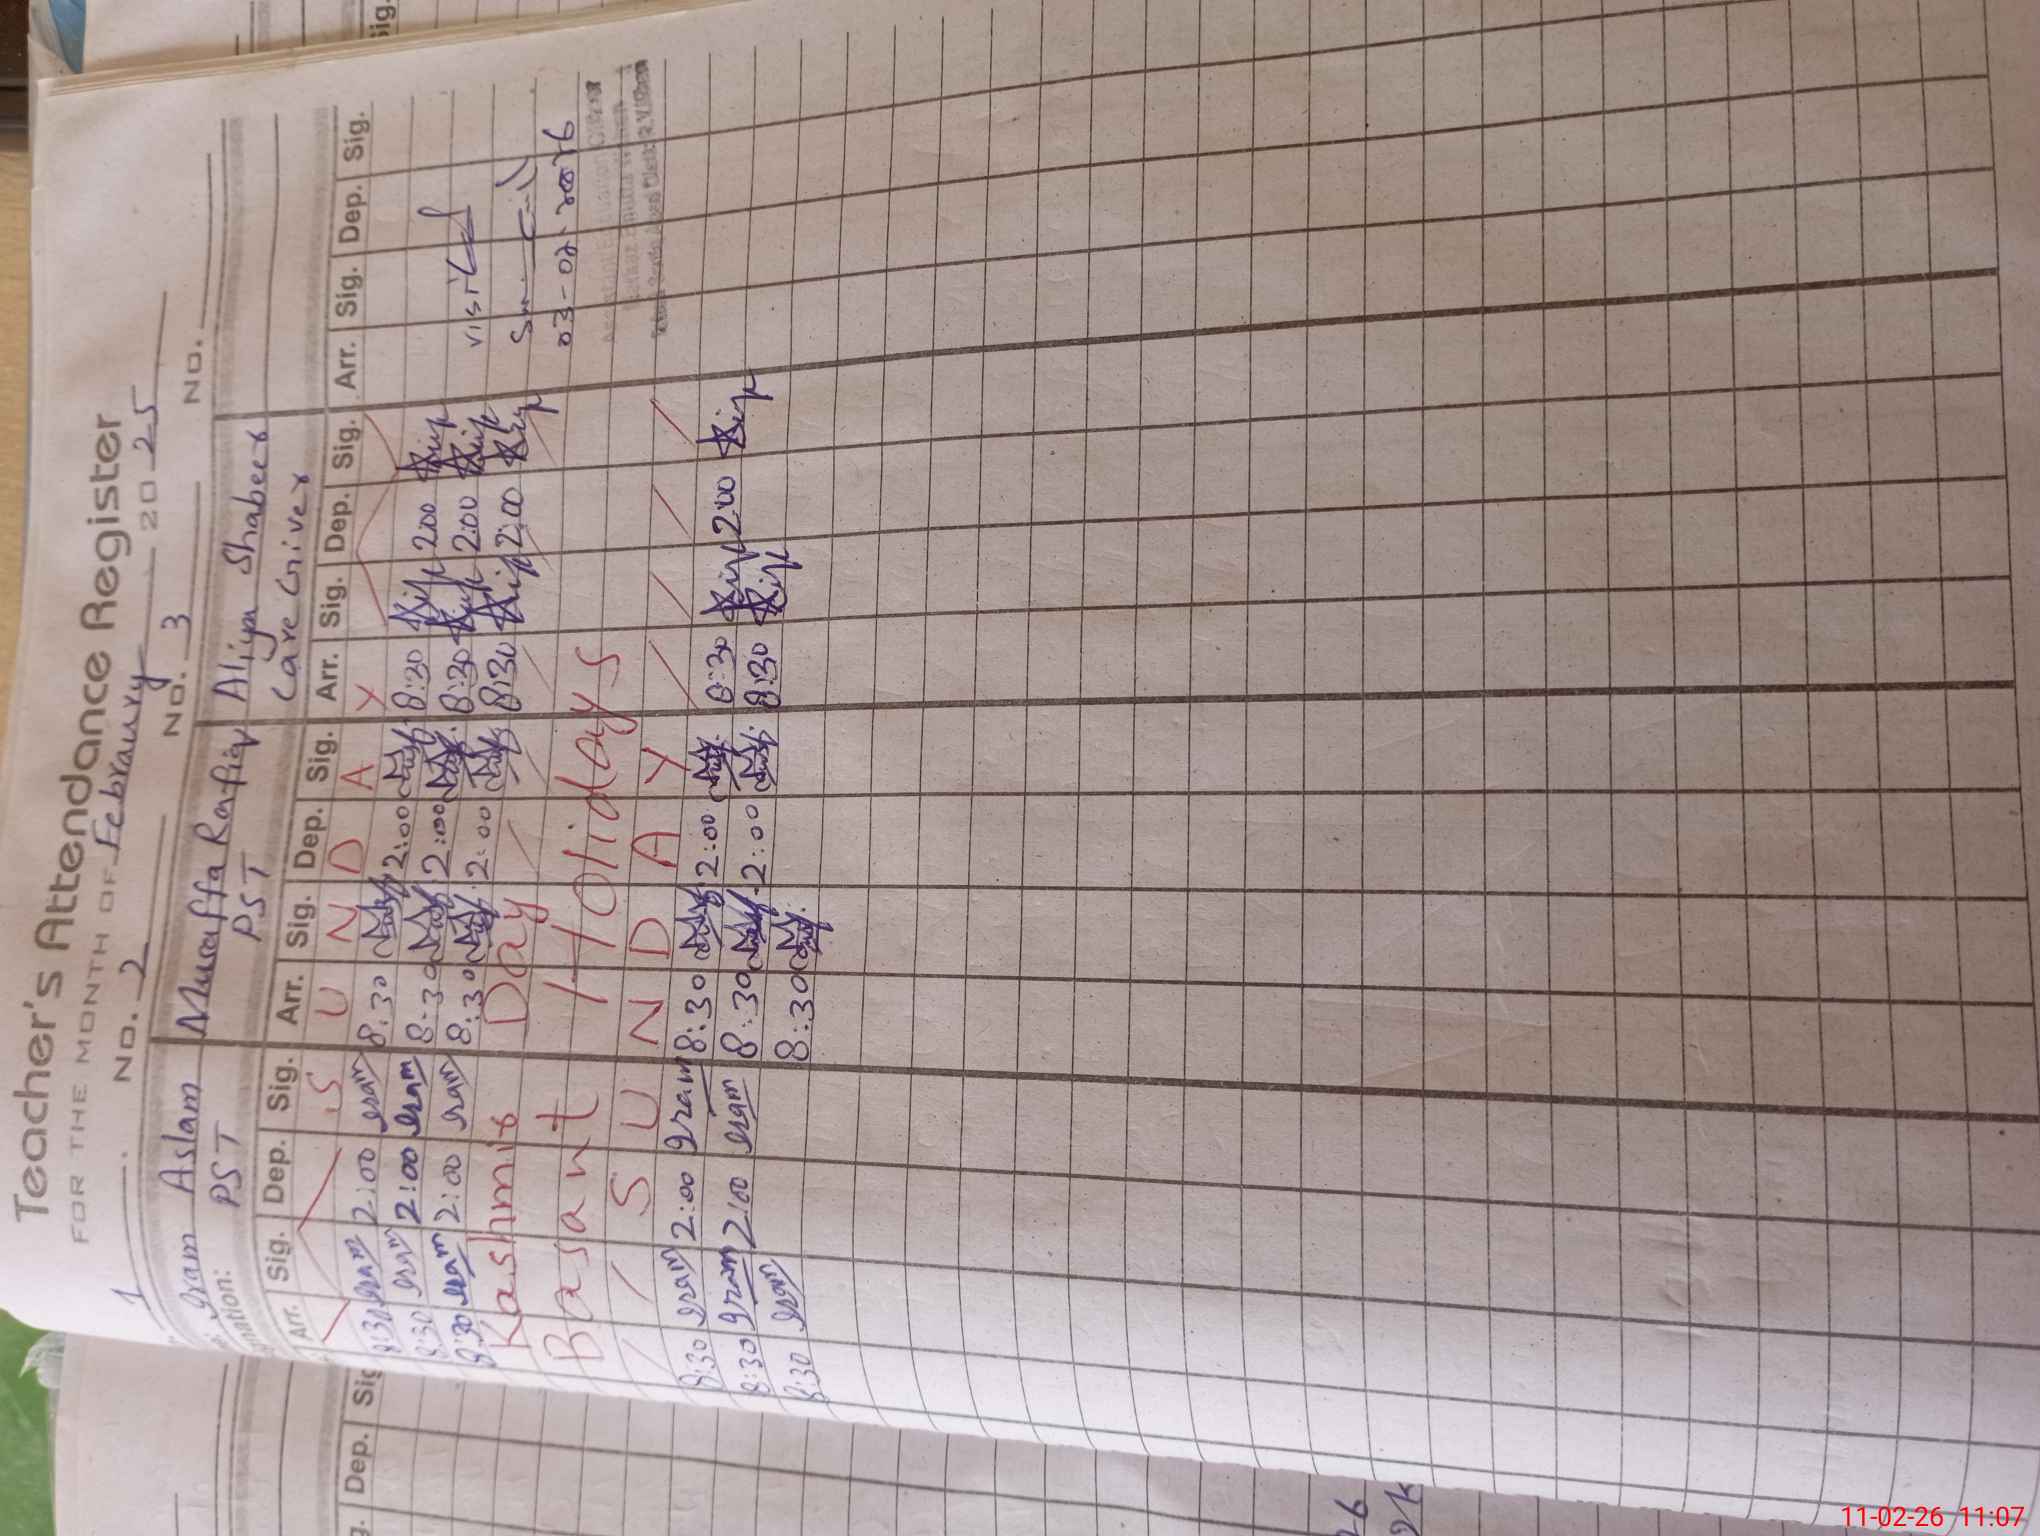 Teacher's Attendance Register
FOR THE MONTH OF February 2025
1 No. 2 No. 3 No.
Iram Aslam Musaffa Rafiq Aliya Shabeer
nation: PST PST Care Giver
Arr. Sig. Dep. Sig. Arr. Sig. Dep. Sig. Arr. Sig. Dep. Sig. Arr. Sig. Dep. Sig.
S U N D A Y
8:30 Iram 2:00 Iram 8:30 2:00 8:30 2:00
8:30 Iram 2:00 Iram 8:30 2:00 8:30 2:00 visited
8:30 Iram 2:00 Iram 8:30 2:00 8:30 2:00
Kashmir Day 03-02-2026
Basant Holidays
S U N D A Y
8:30 Iram 2:00 Iram 8:30 2:00 8:30 2:00
8:30 Iram 2:00 Iram 8:30 2:00 8:30
8:30 Iram 8:30
Dep. Sig
11-02-26 11:07